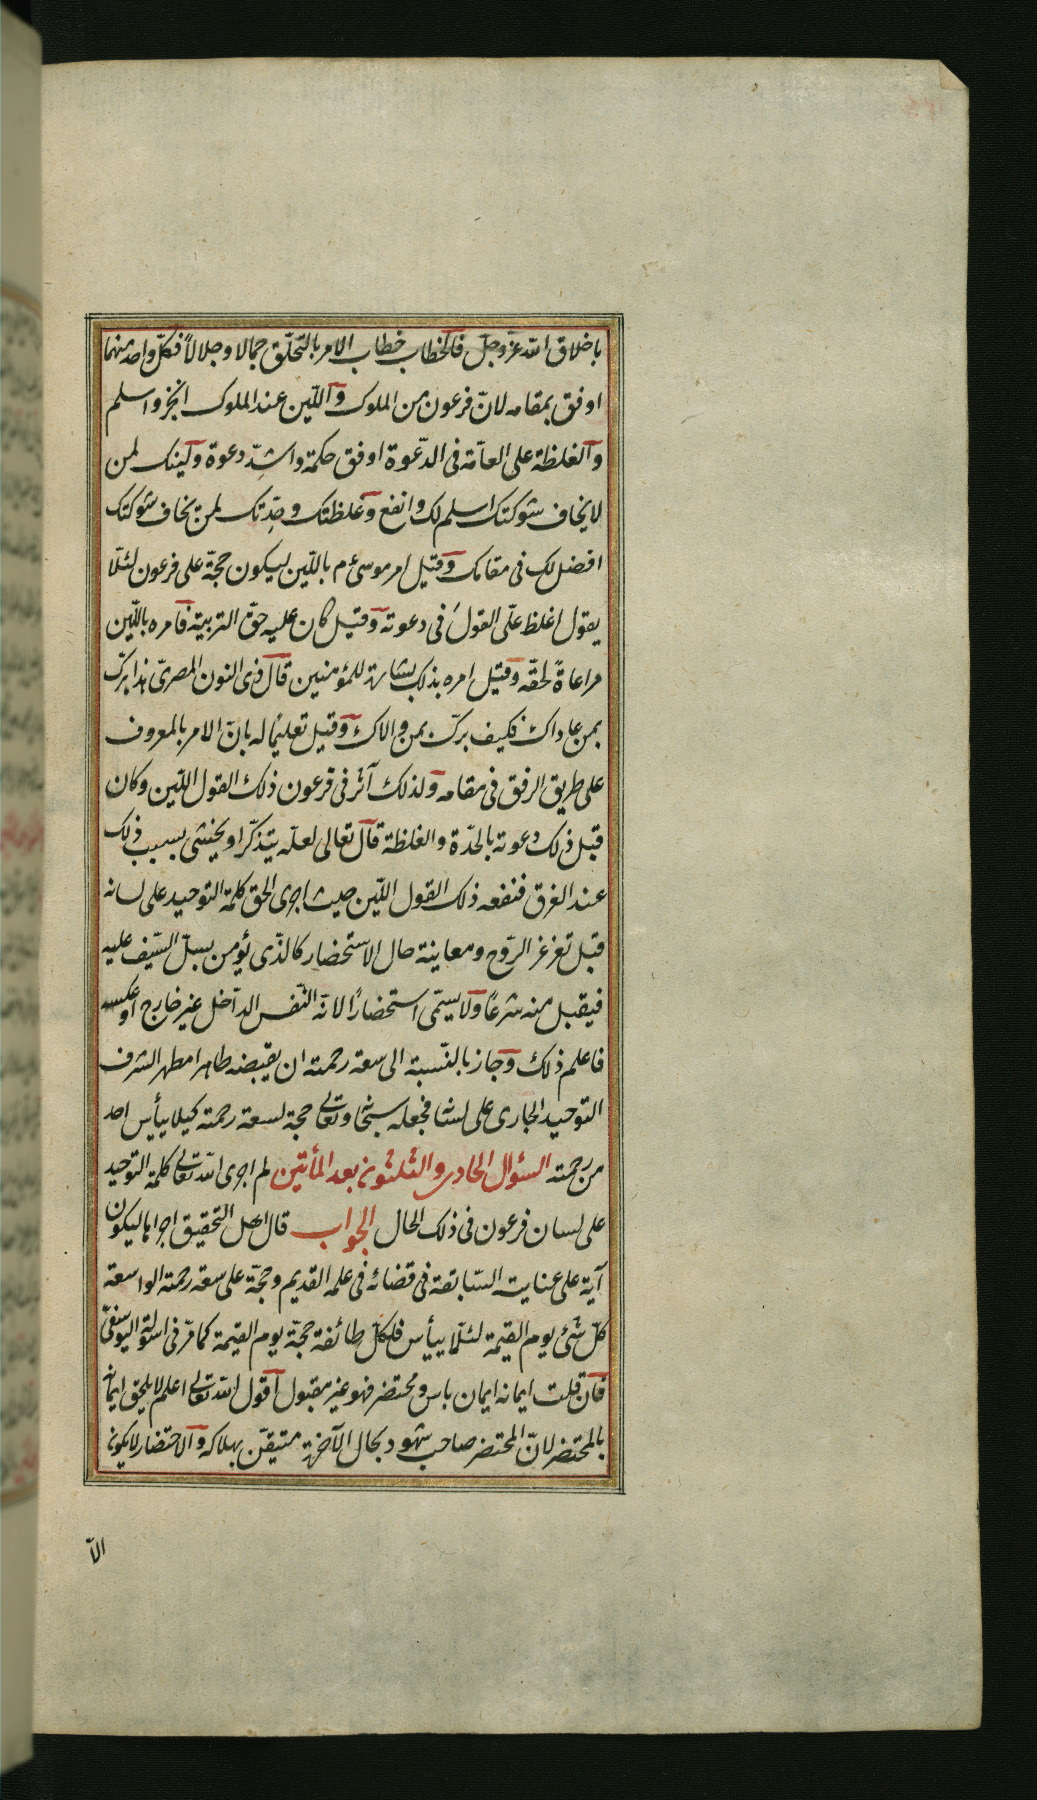 باخلاق الله عزّ وجلّ فالخطاب خطاب الامر بالتخلّق جمالا وجلالاً فكلّ واحد منهما
اوفق بمقامه لانّ فرعون من الملوك واللّين عند الملوك انجز واسلم
والغلظة على العامّة فى الدّعوة اوفق حكمة واشدّ دعوة ولينك لمن
لا يخاف شوكتك اسلم لك وانفع وغلظتك وحدتك لمن يخاف شوكتك
افضل لك فى مقامك وقيل امر موسى ءم باللّين ليكون حجّة على فرعون لئلّا
يقول اغلظ علّى القول فى دعوته وقيل كان عليه حقّ التربية فامره باللّين
مراعاةً لحقّه وقيل امره بذلك بشارة للمؤمنين قال ذى النون المصرىّ هذا برّك
بمن عاداك فكيف برّك بمن والاك وقيل تعليمًا له بانّ الامر بالمعروف
على طريق الرفق فى مقامه ولذلك آثر فى فرعون ذلك القول اللّين وكان
قبل ذلك دعوته بالحدّة والغلظة قال تعالى لعلّه يتذكّر او يخشى بسبب ذلك
عند الغرق فنفعه ذلك القول اللّين حيث اجرى الحق كلمة التوحيد على لسانه
قبل تغرغر الرّوح ومعاينة حال الاستحضار كالذّى يؤمن بسلّ السّيف عليه
فيقبل منه شرعًا ولا يسمّى استحضارًا لانّه النّفس الدّاخل غير خارج او عكسه
فاعلم ذلك وجاز بالنّسبة الى سعة رحمته ان يقبضه طاهرا مطهرا لشرف
التوحيد الجارى على لسانه فجعله سبحا وتعالى حجة لسعة رحمته كيلا ييأس احد
من رحمته السئوال الحادى والثلثون بعد المأتين لم اجرى الله تعالى كلمة التوحيد
على لسان فرعون فى ذلك الحال الجواب قال اهل التحقيق اجراها ليكون
آية على عنايته السّابقة فى قضائه فى علمه القديم وحجّة على سعة رحمته الواسعة
كلّ شئ يوم القيمة لئلّا ييأس فلكلّ طائفة حجّة يوم القيمة كما مرّ فى اسولة اليوسفىّ
فان قلت ايمانه ايمان باس ومحتضر فهو غير مقبول اقول الله تعالى اعلم لا يلحق ايمانه
بالمحتضر لانّ المحتضر صاحب شهود بحال الآخرة متيقّن بهلاكه والاحتضار لا يكون
الّا